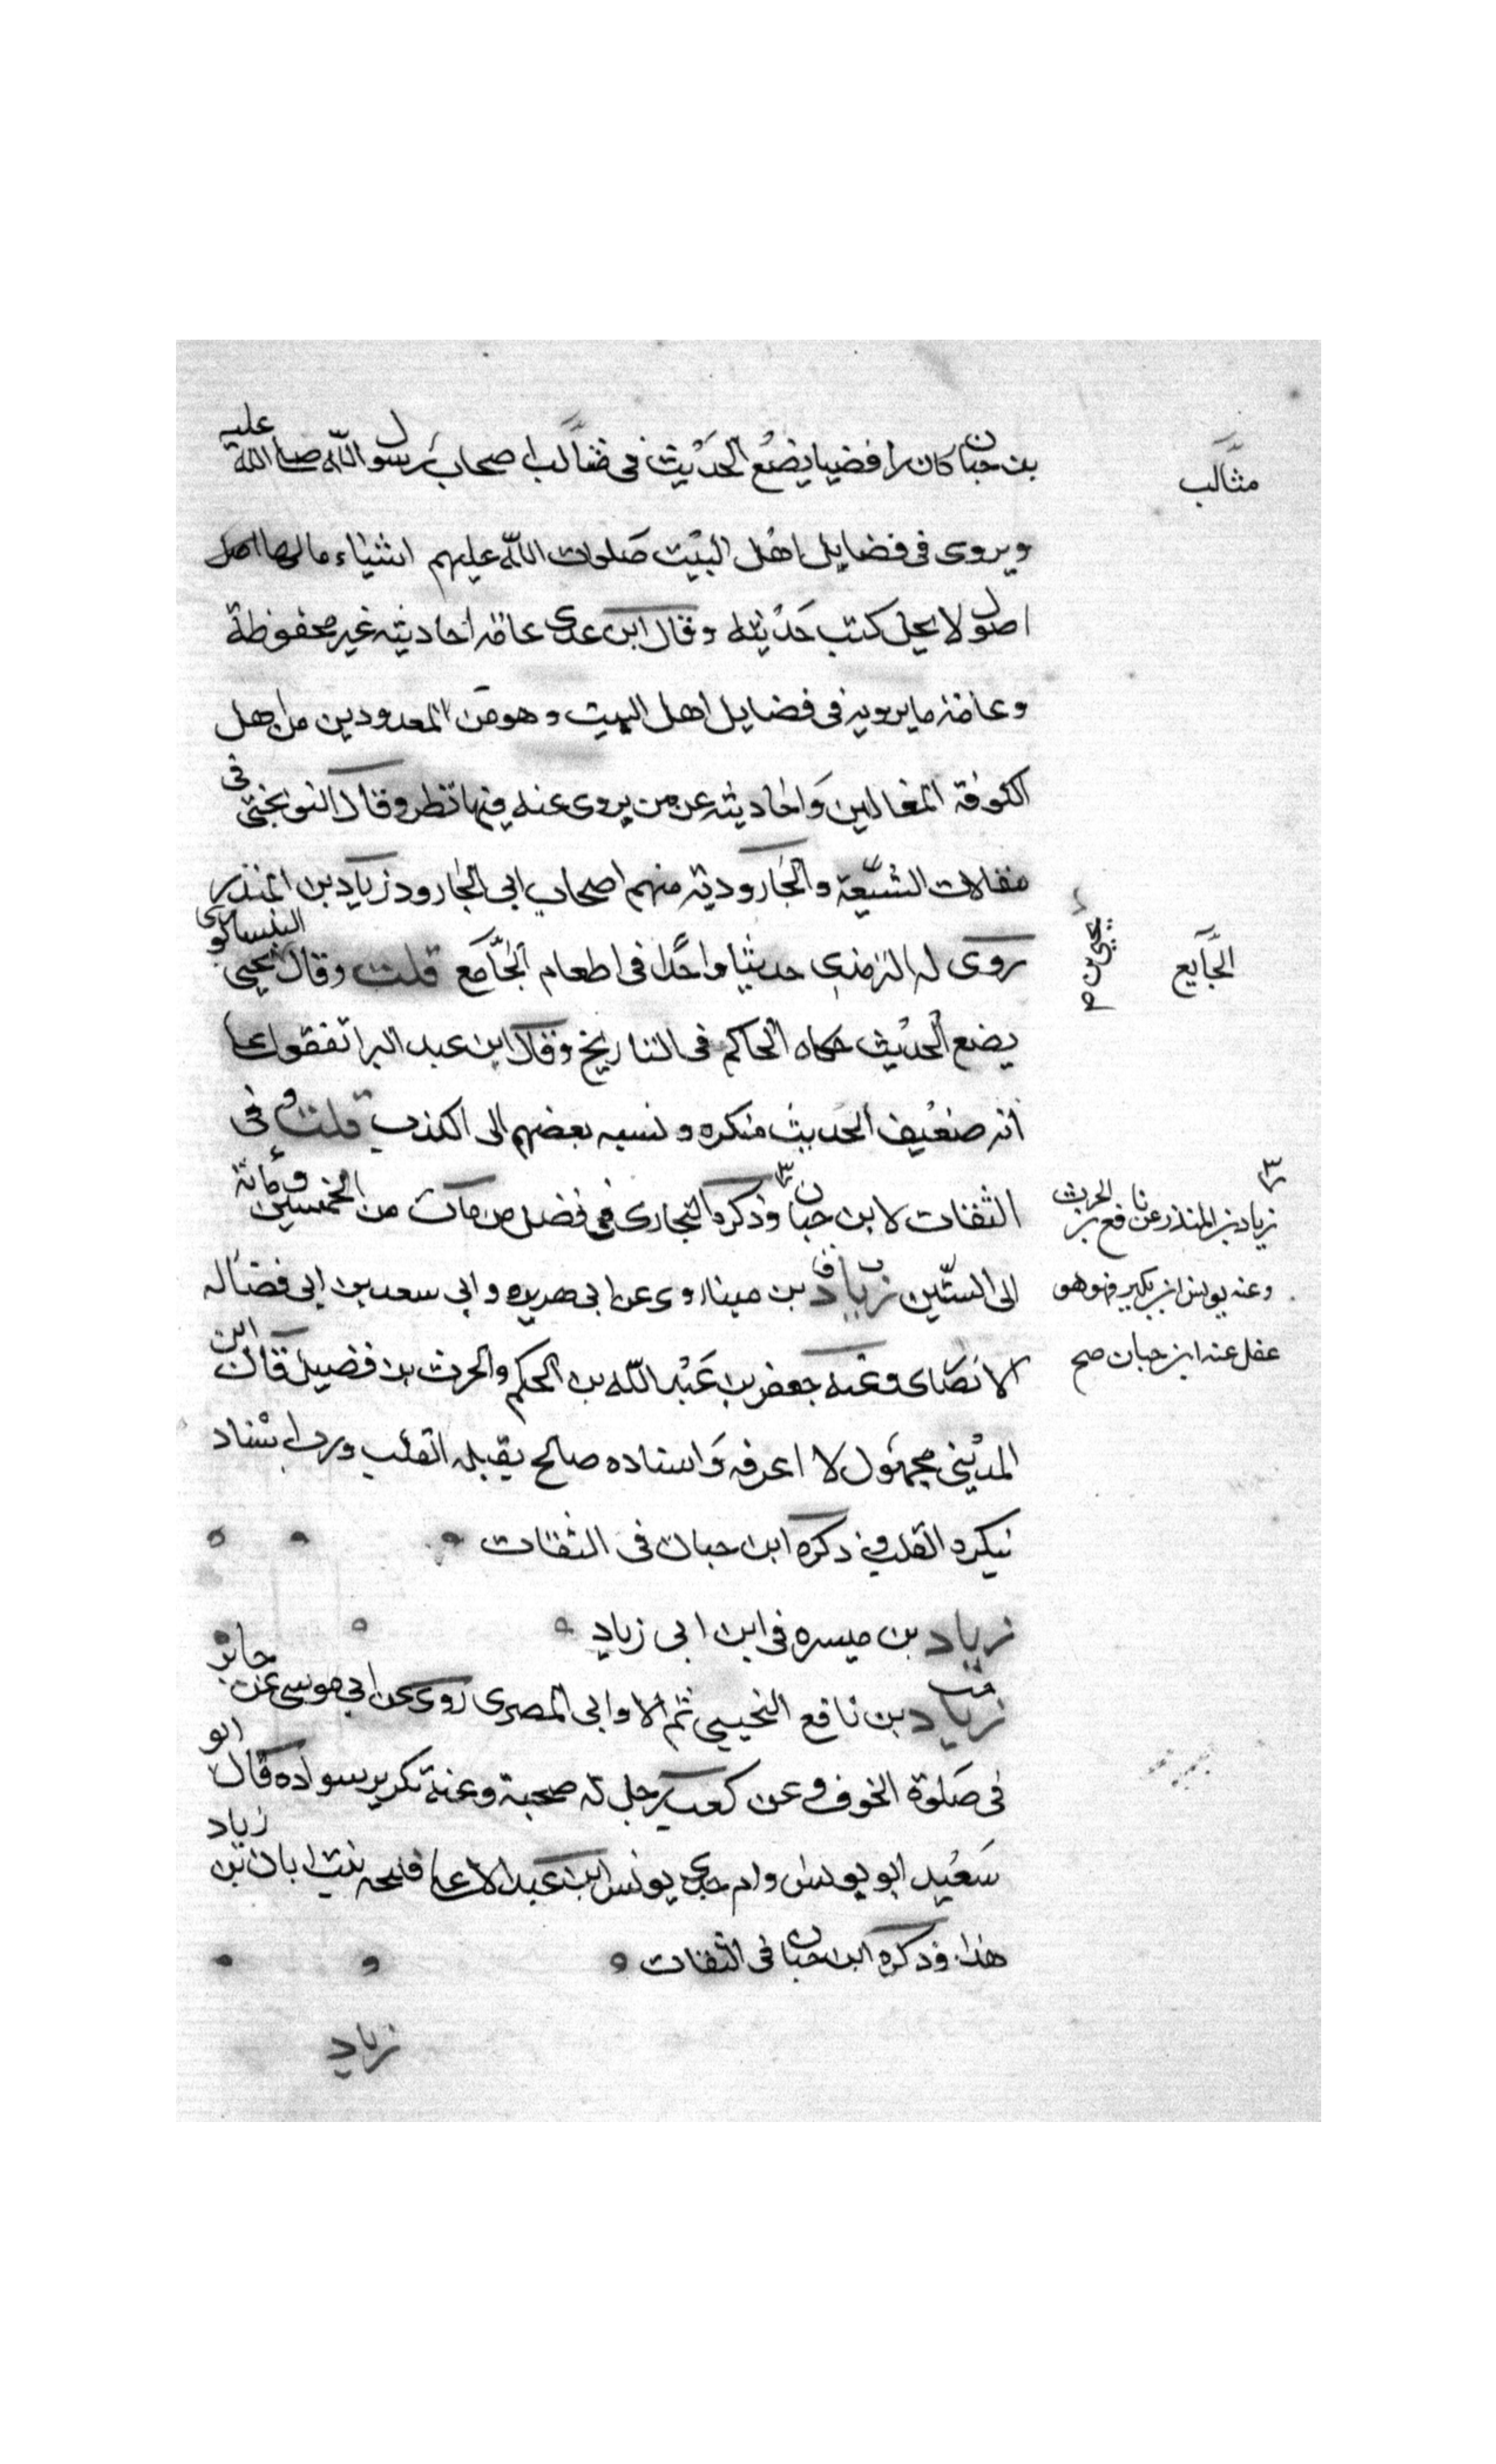 بن حبان كان رافضيا يضع الحديث في مثالب اصحاب رسول الله صلى الله عليه
مثالب
ويروى فى فضايل اهل البيت صلوات الله عليهم اشياء مالها اصل
اصول لا يحل كتب حديثه وقال ابن عدى عامة احاديثه غير محفوظة
وعامة ما يرويه فى فضايل اهل البيت وهو من المعدودين من اهل
الكوفة المغالين واحاديثه عن من يروى عنه فيها نظر وقال النوبختى فى
مقالات الشيعة والجارودية منهم اصحاب ابى الجارود زياد بن المنذر
روى له الترمذي حديثا واحدا فى اطعام الجامع قلت وقال يحيى النيسابورى
الجايع
يحيى بن
يضع الحديث حكاه الحاكم فى التاريخ وقال ابن عبد البر اتفقوا على
انه ضعيف الحديث منكره ونسبه بعضهم الى الكذب قلت وفى
الثقات لابن حبان وذكره البخارى فى فضل من مات من الخمسين ومائة
زياد بن المنذر عن نافع بن الحرث
وعنه يونس ابن بكير فهو هو
غفل عنه ابن حبان صح
الى الستين زياد بن مينا روى عن ابى هريره وابى سعد بن ابى فضاله
الانصارى وعنه جعفر بن عبد الله بن الحكم والحرث بن فضيل قال ابن
المدينى مجهول لا اعرفه واسناده صالح يقبله القلب ورب اسناد
ينكره القلب وذكره ابن حبان فى الثقات
زياد بن ميسره فى ابن ابى زياد
زياد بن نافع التجيبى ثم الاوابى المصرى روى عن ابى موسى عن جابر
فى صلوة الخوف وعن كعب رجل له صحبة وعنه بكر بن سواده قال ابو
سعيد ابو يونس وام جدى يونس ابن عبد الاعلى فليحه بنت ابان بن زياد
هذا وذكره ابن حبان فى الثقات
زياد